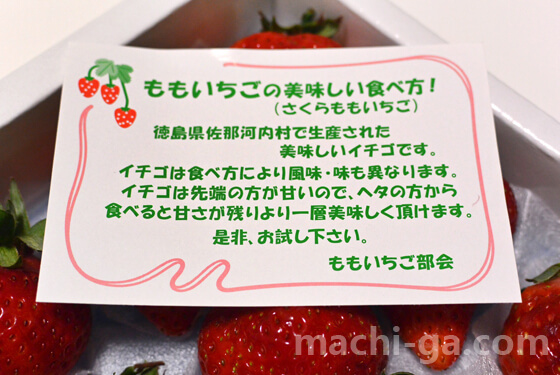 ももいちごの美味しい食べ方！
（さくらももいちご）
徳島県佐那河内村で生産された
美味しいイチゴです。
イチゴは食べ方により風味・味も異なります。
イチゴは先端の方が甘いので、ヘタの方から
食べると甘さが残りより一層美味しく頂けます。
是非、お試し下さい。
ももいちご部会
machi-ga.com